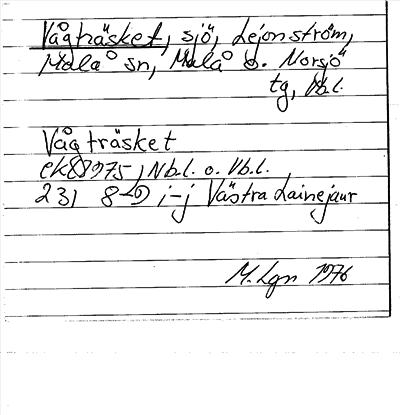 Vågträsket, sjö, Lejonström,
Malå sn, Malå o. Norsjö
tg, Vb.l.
Vågträsket
ek 1975, Nb.l. o. Vb.l.
23 J 8-9 i-j Västra Lainejaur
M. Lgn 1976